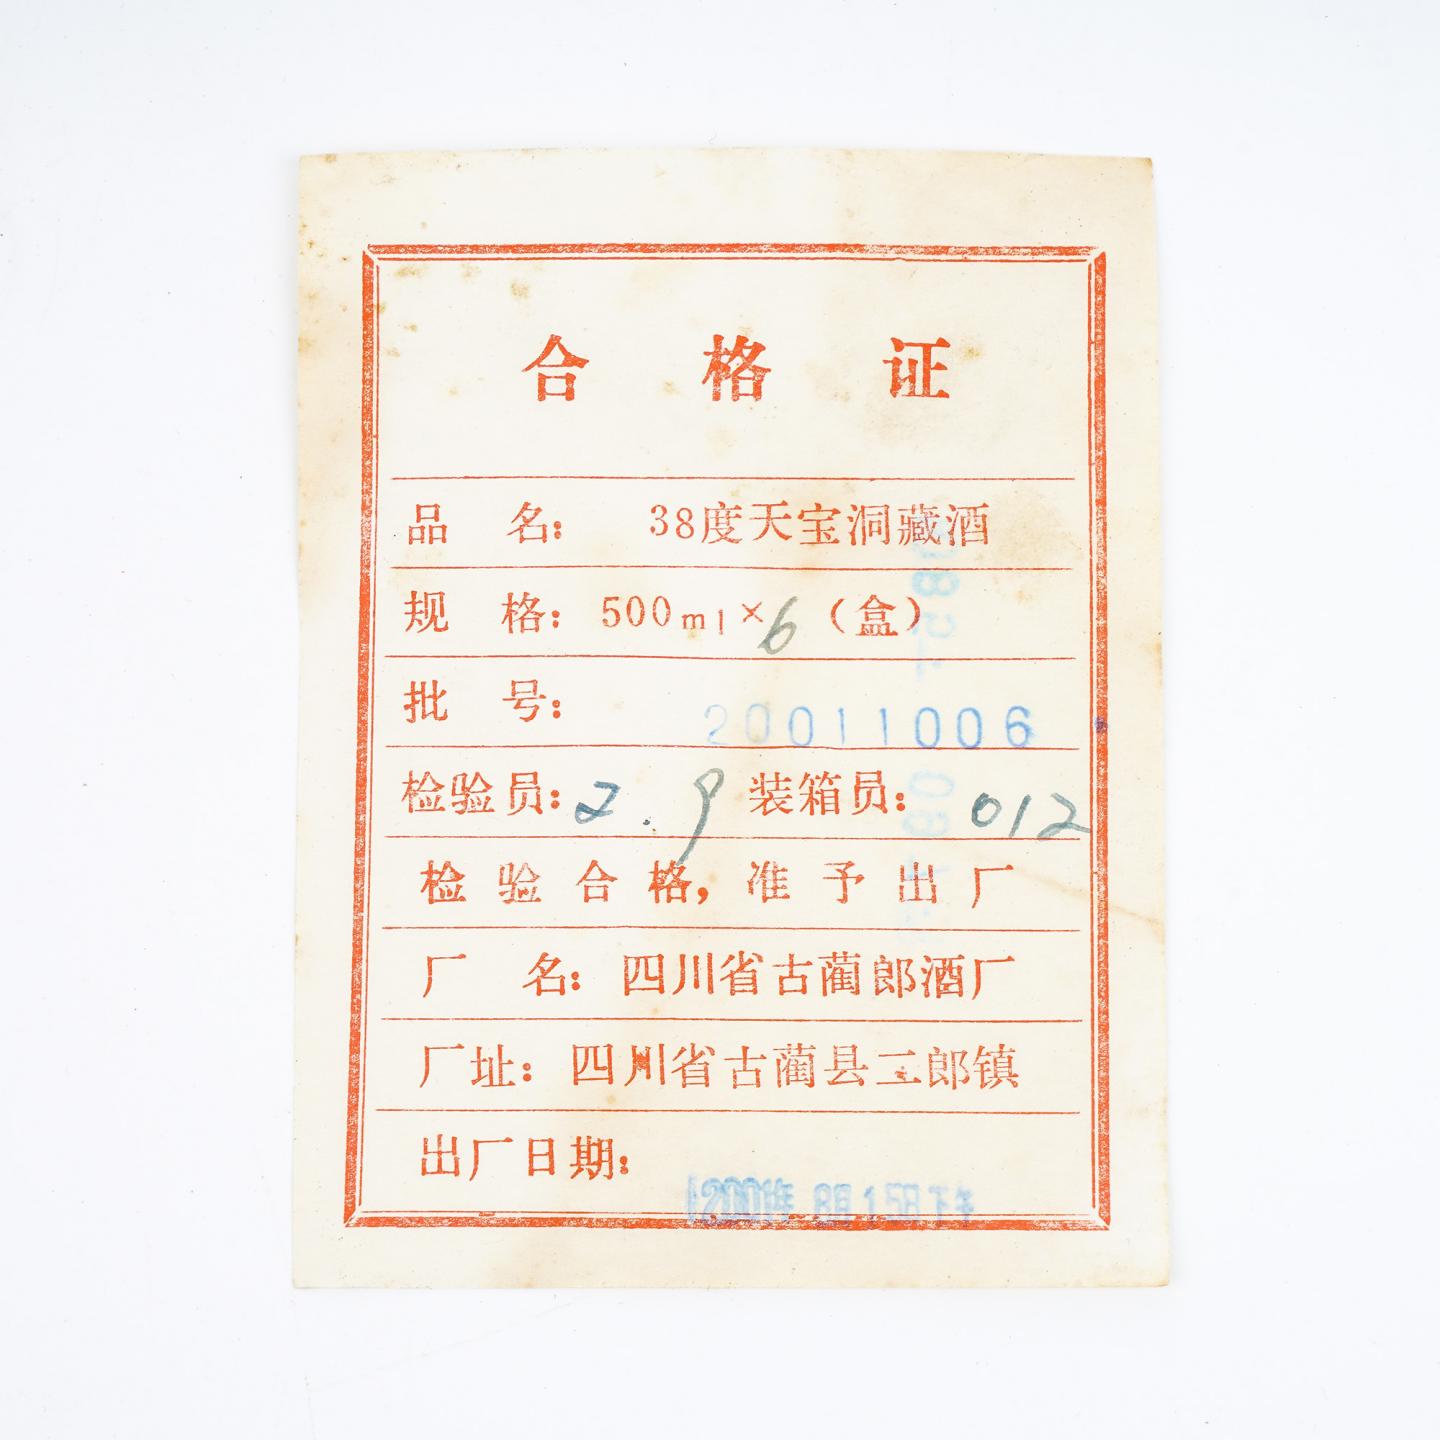 合格证
品 名： 38度天宝洞藏酒
规 格：500ml×6（盒）
批 号： 20011006
检验员：2.9 装箱员：012
检验合格，准予出厂
厂 名：四川省古蔺郎酒厂
厂址：四川省古蔺县二郎镇
出厂日期：
2001年 8月15日下午